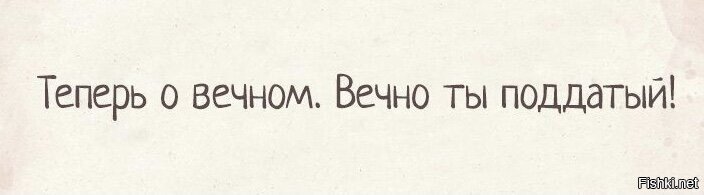 Теперь о вечном. Вечно ты поддатый!
Fishki.net